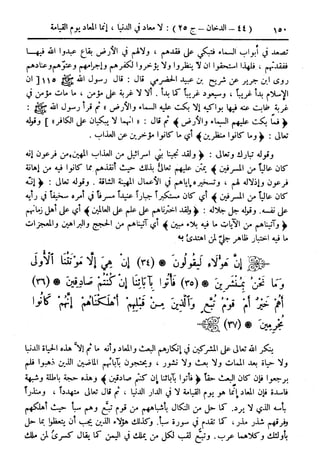 ١٥٠ (٤٤ - الدخان - ج ٢٥) : لا معاد في الدنيا ، إنما المعاد يوم القيامة
تصعد في أبواب السماء فتبكي على فقدهم ، ولالهم في الأرض بقاع عبدوا الله فيهـا
ففقدتهم ، فلهذا استحقوا أن لا ينظروا ولا يؤخروا لكفرهم وإجرامهم وعتوهم وعنادهم
روى ابن جرير عن شريح بن عبيد الحضرمي قال : قال رسول الله ﷺ ١١٥ [ ان
الإسلام بدأ غريباً ، وسيعود غريباً كما بدأ. ألا لا غربة على مؤمن ، ما مات مؤمن في
غربة غابت عنه فيها بواكيه إلا بكت عليه السماء والأرض ﴾ ثم قرأ رسول الله :
﴿ فما بكت عليهم السماء والأرض ﴾ ثم قال : « انهما لا يبكيان على الكافر» ] وقوله
تعالى : ﴿ وما كانوا منظرين ﴾ أي ما كانوا مؤخرين عن العذاب .
وقوله تبارك وتعالى : ﴿ ولقد نجينا بني اسرائيل من العذاب المهين، من فرعون إنه
كان عالياً من المسرفين ﴾ يمتن عليهم تعالى بذلك حيث أنقذهم مما كانوا فيه من إهانة
فرعون وإذلاله لهم ، وتسخيره إياهم في الأعمال المهينة الشاقة . وقوله تعالى : ﴿ إنه
كان عالياً من المسرفين ﴾ أي كان مستكبراً جباراً عنيداً مسرفاً في أمره سخيفاً في رأيه
على نفسه. وقوله جل جلاله : ﴿ ولقد اخترناهم على علم على العالمين ﴾ أي على أهل زمانهم
﴿ وآتيناهم من الآيات ما فيه بلاء مبين ﴾ أي آتيناهم من الحجج والبراهين والمعجزات
ما فيه اختبار ظاهر جلي لمن اهتدى به
إِنَّ هَٰؤُلَاءِ لَيَقُولُونَ * (٣٤) إِنْ هِيَ إِلَّا مَوْتَتُنَا الْأُولَىٰ
وَمَا نَحْنُ بِمُنْشَرِينَ * (٣٥) فَأْتُوا بِآبَائِنَا إِنْ كُنْتُمْ صَادِقِينَ * (٣٦)
أَهُمْ خَيْرٌ أَمْ قَوْمُ تُبَّعٍ وَالَّذِينَ مِنْ قَبْلِهِمْ أَهْلَكْنَاهُمْ إِنَّهُمْ كَانُوا
مُجْرِمِينَ * (٣٧)
ينكر الله تعالى على المشركين في إنكارهم البعث والمعاد وأنه ما ثم إلا هذه الحياة الدنيا
ولا حياة بعد الممات ولا بعث ولا نشور ، ويحتجون بآبائهم الماضين الذين ذهبوا فلم
يرجعوا فإن كان البعث حقاً ﴿ فأتوا بآبائنا إن كنتم صادقين ﴾ وهذه حجة باطلة وشبهة
فاسدة فإن المعاد إنما هو يوم القيامة لا في الدار الدنيا ، ثم قال تعالى متهدداً ، ومنذراً
بأسه الذي لا يرد. كما حل من النكال بأشباههم من قوم تبع وهم سبأ ، حيث أهلكهم
وفرقهم شذر مذر ، كما تقدم في سورة سبأ. وكذلك هؤلاء الذين يجب أن يتعظوا بما حل
بأولئك وكلاهما عرب . وتبع لقب لكل من ملك في اليمن كما يقال كسرى لمن ملك